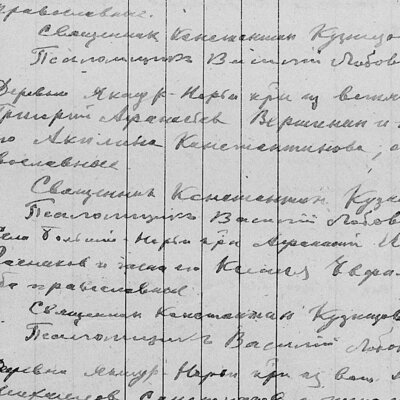 православные.
Священник Константин Кузнецо
Псаломщик Василий Лобов
Деревни Якшур-Норьи кр-н из вотяк
Григорий Афанасьев Вершинин и
го Акилина Константинова,
вославные
Священник Константин Кузн
Псаломщик Василий Лобов
Села Большой-Норьи кр-н
и жена его Ксения
ба православные
Священник Константин Кузнецов
Псаломщик Василий Лобо
Деревни Якшур-Норьи кр-н из вот.